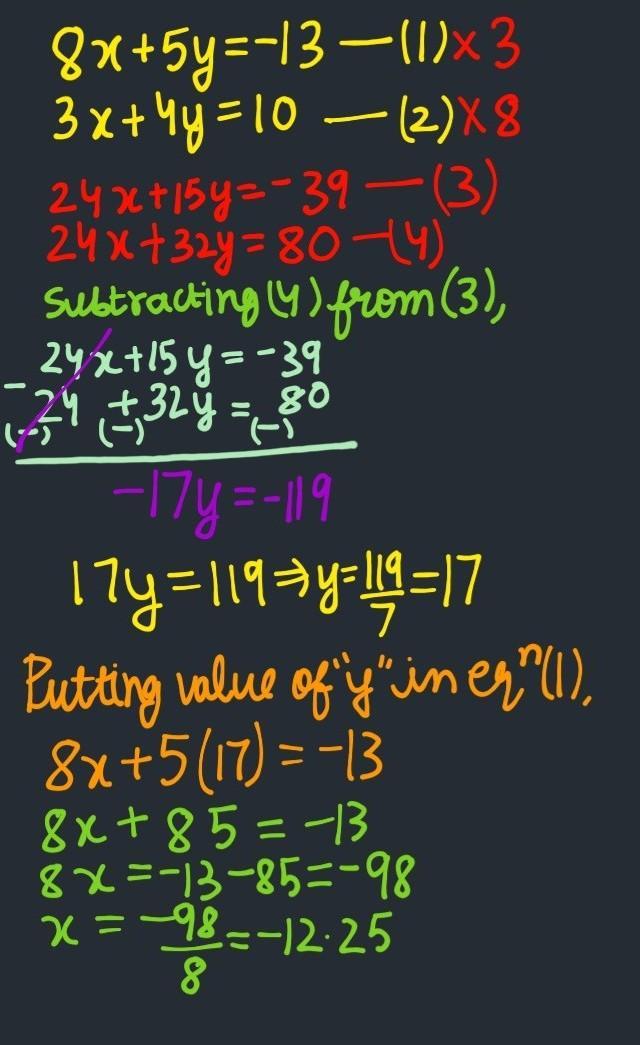 8x+5y=-13 —(1)×3
3x+4y=10 —(2)×8
24x+15y=-39 —(3)
24x+32y=80 —(4)
Subtracting (4) from (3),
24x+15y=-39
- 24 +32y = 80
(-) (-) (-)
-17y=-119
17y=119⇒y=119/7=17
Putting value of "y" in eqⁿ(1),
8x+5(17)=-13
8x+85=-13
8x=-13-85=-98
x=-98/8=-12.25